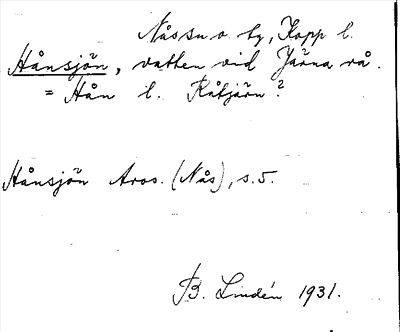 Nåssn o. by, Kopp l.
Hånsjön, vatten vid Järna rå.
= Hån l. Råtjärn?
Hånsjön Aros. (Nås), s. 5.
B. Lindén 1931.